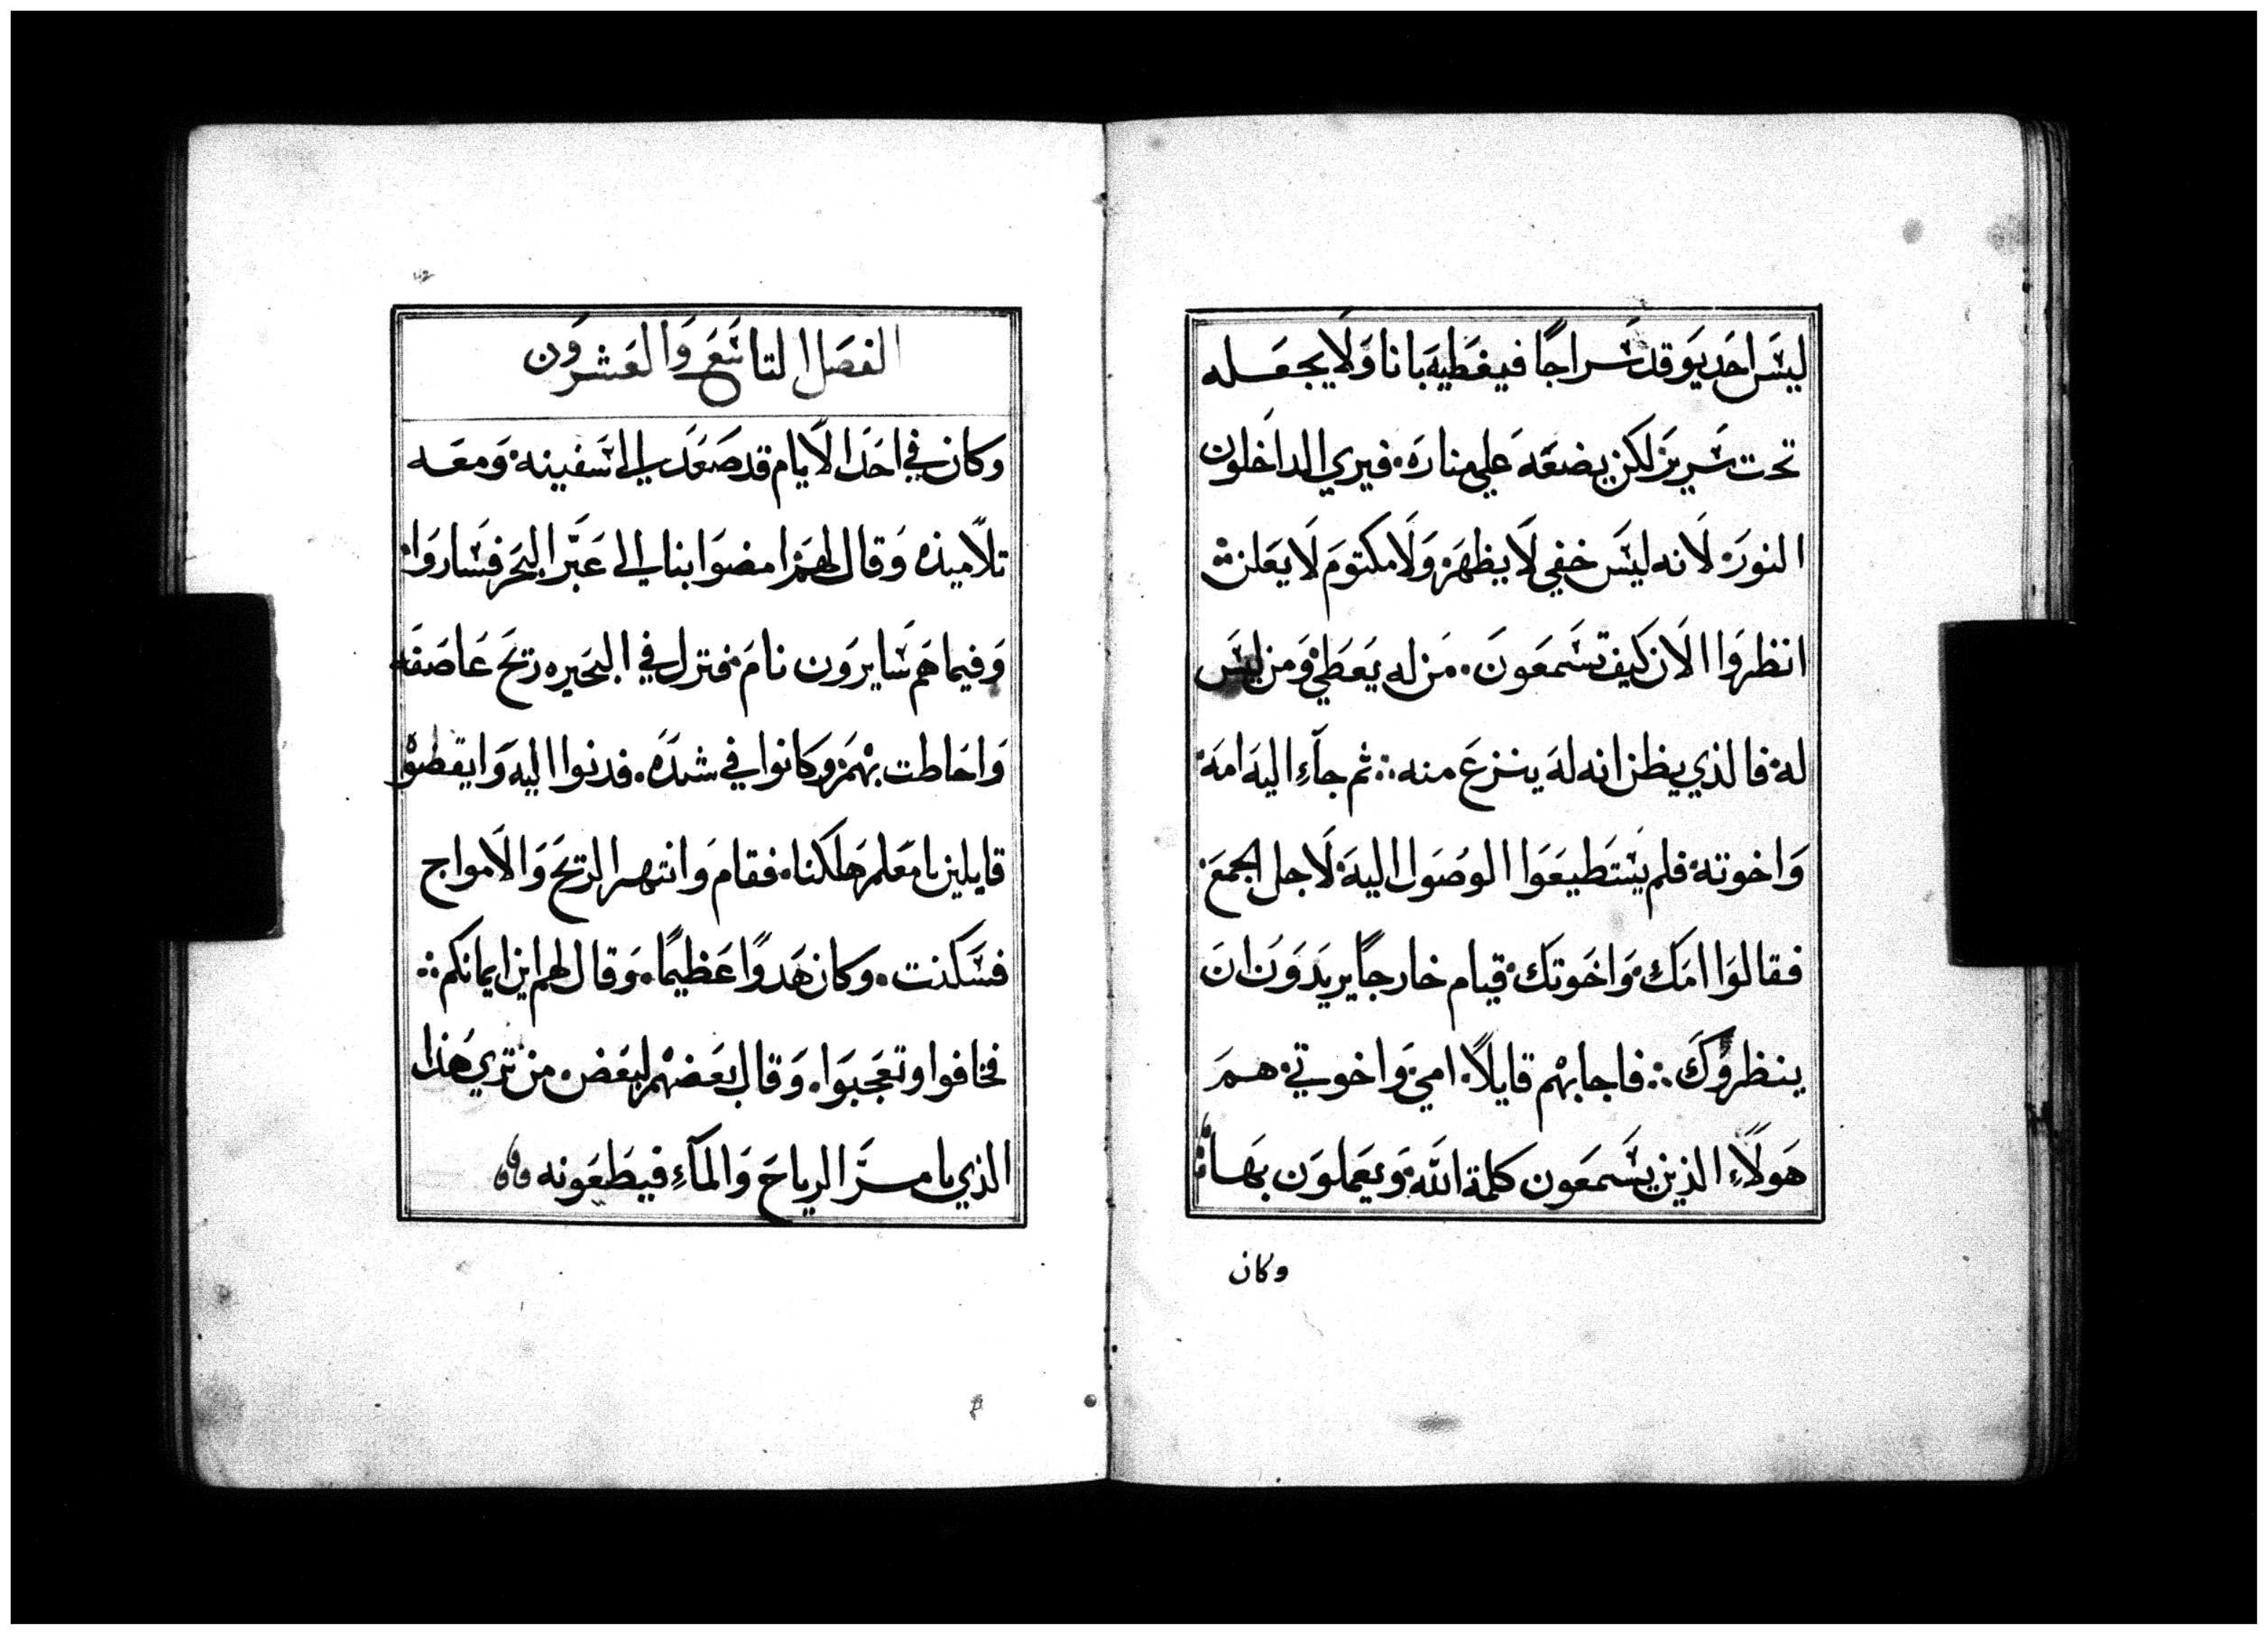 ليسَ احَد يوَقد سَراجًا فيغطَيهَ بانا وَلَا يجعَله
تحت سَريرَ لكن يضعَهَ عَلي منارَه. فيري الداخَلون
النورَ. لَانه ليسَ خفي لَا يظهَرَ. وَلَا مكتومَ لَا يعَلن
انظروَا الَان كَيف تسَمعَونَ. مَن له يعَطَي وَمن ليسَ
له. فالذي يظن انه لهَ ينزعَ منه. ثم جآءِ اليهَ امهَ
وَاخوته. فلم يسَتَطَيعَوَا الوصُوَل اليهَ. لَاجل الجمَعَ
فقالوَا امَكِ. وَاخَوتكَ. قيام خارجًا يريدَوَن انَ
ينظروكَ. فاجابهْم قايلًا. امي. وَاخوتي. همَ
هَولَاءِ الذين يسَمعَون كلمة اللَه. وَيعَملوَن بهَا
وكان
الفصَل التاسَعَ وَالعَشروَن
وكان في احَدَ الَايام قد صَعَدَ الي سَفينه. وَمعَه
تلَاميذه وَقال لهمَ امضوَا بنا الي عَبَر البحَر فسَاروَا.
وَفيما هَم سَايروَن نامَ. فنزل في البحَيره ريَح عَاصَفه
وَاحَاطت بهْمَ. وَكانوا في شدَهَ. فدنوا اليهَ وَايقظوْه
قايلين يا معَلمَ هَلكنا. فقامَ وَانتهر الريَح وَالَامواج
فسَكنت. وكان هَدوًا عَظيمًا. وَقال لهم اين ايمانكم
فخافوا وتعَجبَوَا. وَقال بعَضهْم لبعَض. من تري هَذا
الذي يامرَ الرياحَ وَالمآءِ فيطَعَونه